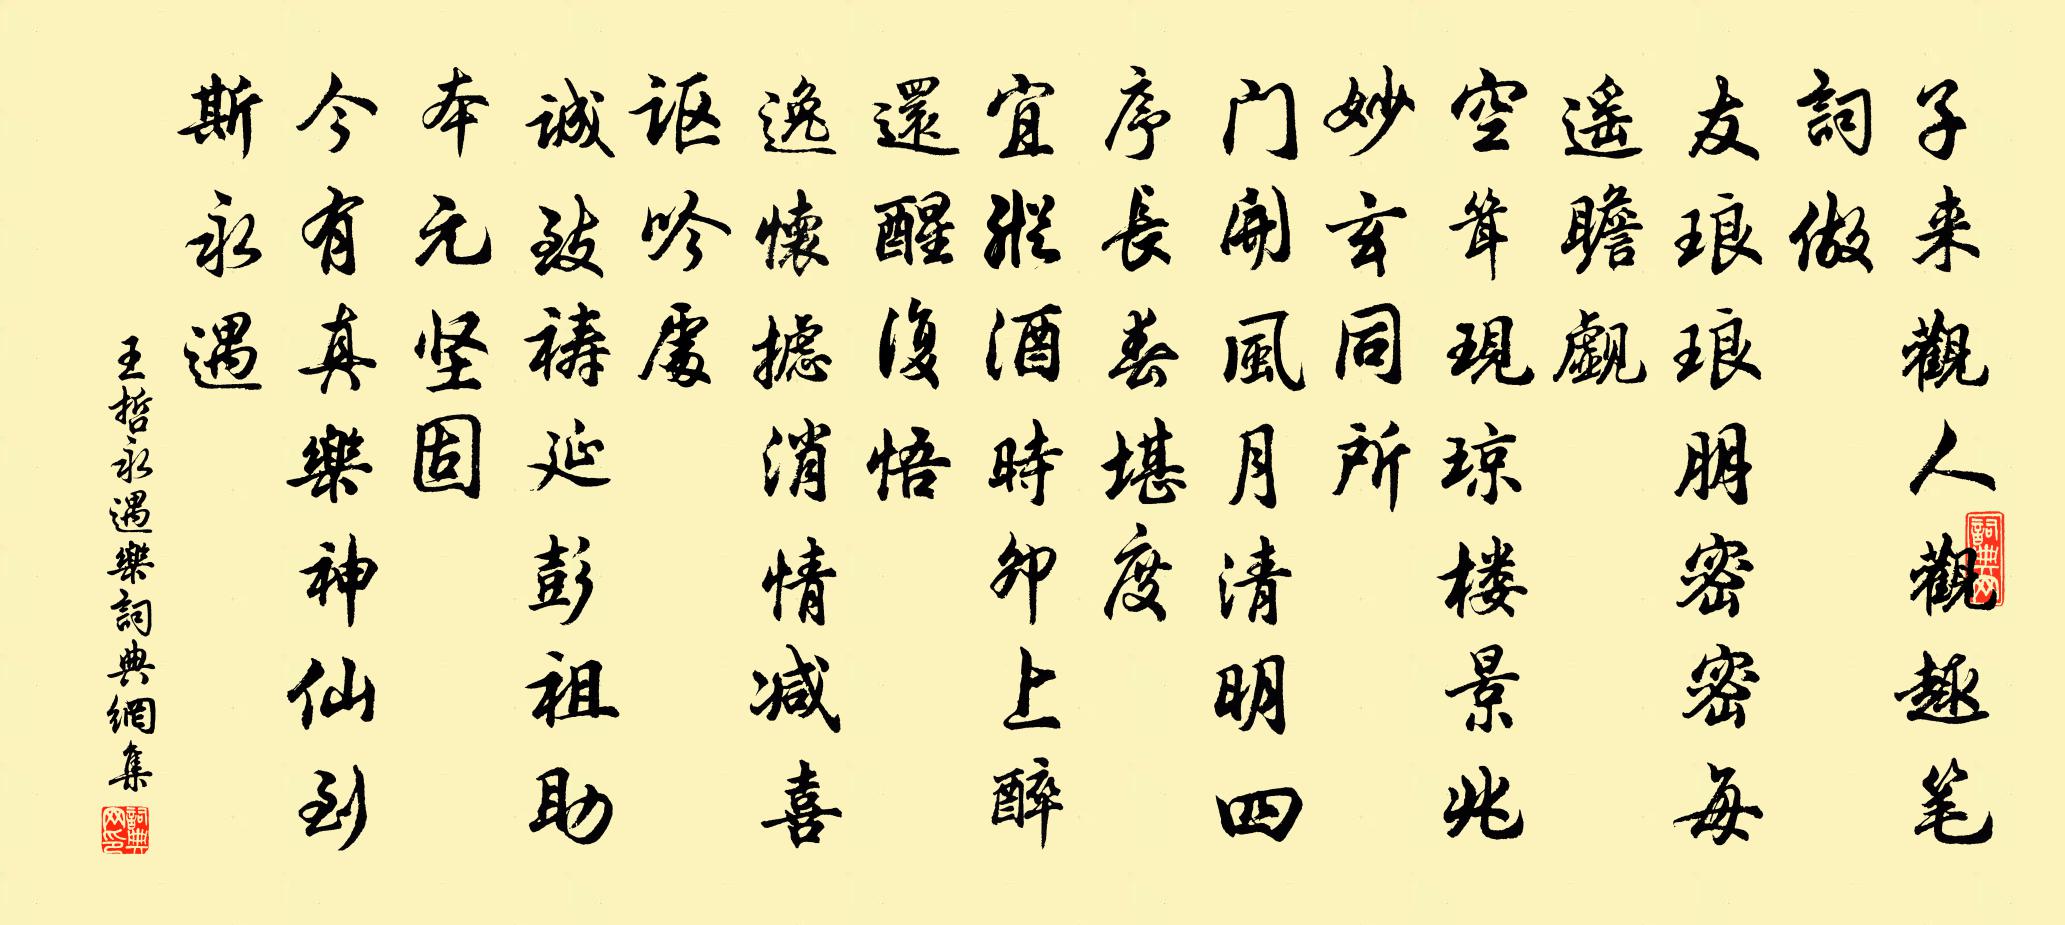 子来觀人觀趣笔
詞做
友琅琅朋密密每
遥瞻觑
空耸現琼楼景兆
妙玄同所
门開風月清明四
序長春堪度
宜纵酒時卯上醉
還醒復悟
逸懷摅消情减喜
讴吟處
誠致祷延彭祖助
本元坚固
今有真樂神仙到
斯永遇
王哲永遇樂詞典網集
詞典网
詞典网印